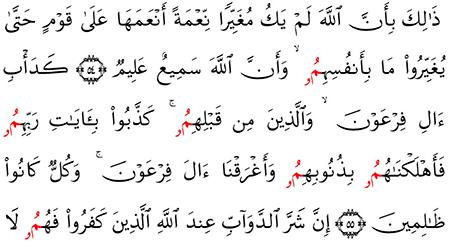 ذَٰلِكَ بِأَنَّ ٱللَّهَ لَمْ يَكُ مُغَيِّرًا نِّعْمَةً أَنْعَمَهَا عَلَىٰ قَوْمٍ حَتَّىٰ
يُغَيِّرُوا۟ مَا بِأَنفُسِهِمُۥ ۙ وَأَنَّ ٱللَّهَ سَمِيعٌ عَلِيمٌ ۝٥٤ كَدَأْبِ
ءَالِ فِرْعَوْنَ ۙ وَٱلَّذِينَ مِن قَبْلِهِمُۥ ۚ كَذَّبُوا۟ بِـَٔايَـٰتِ رَبِّهِمُۥ
فَأَهْلَكْنَـٰهُمُۥ بِذُنُوبِهِمُۥ وَأَغْرَقْنَا ءَالَ فِرْعَوْنَ ۚ وَكُلٌّ كَانُوا۟
ظَـٰلِمِينَ ۝٥٥ إِنَّ شَرَّ ٱلدَّوَآبِّ عِندَ ٱللَّهِ ٱلَّذِينَ كَفَرُوا۟ فَهُمُۥ لَا